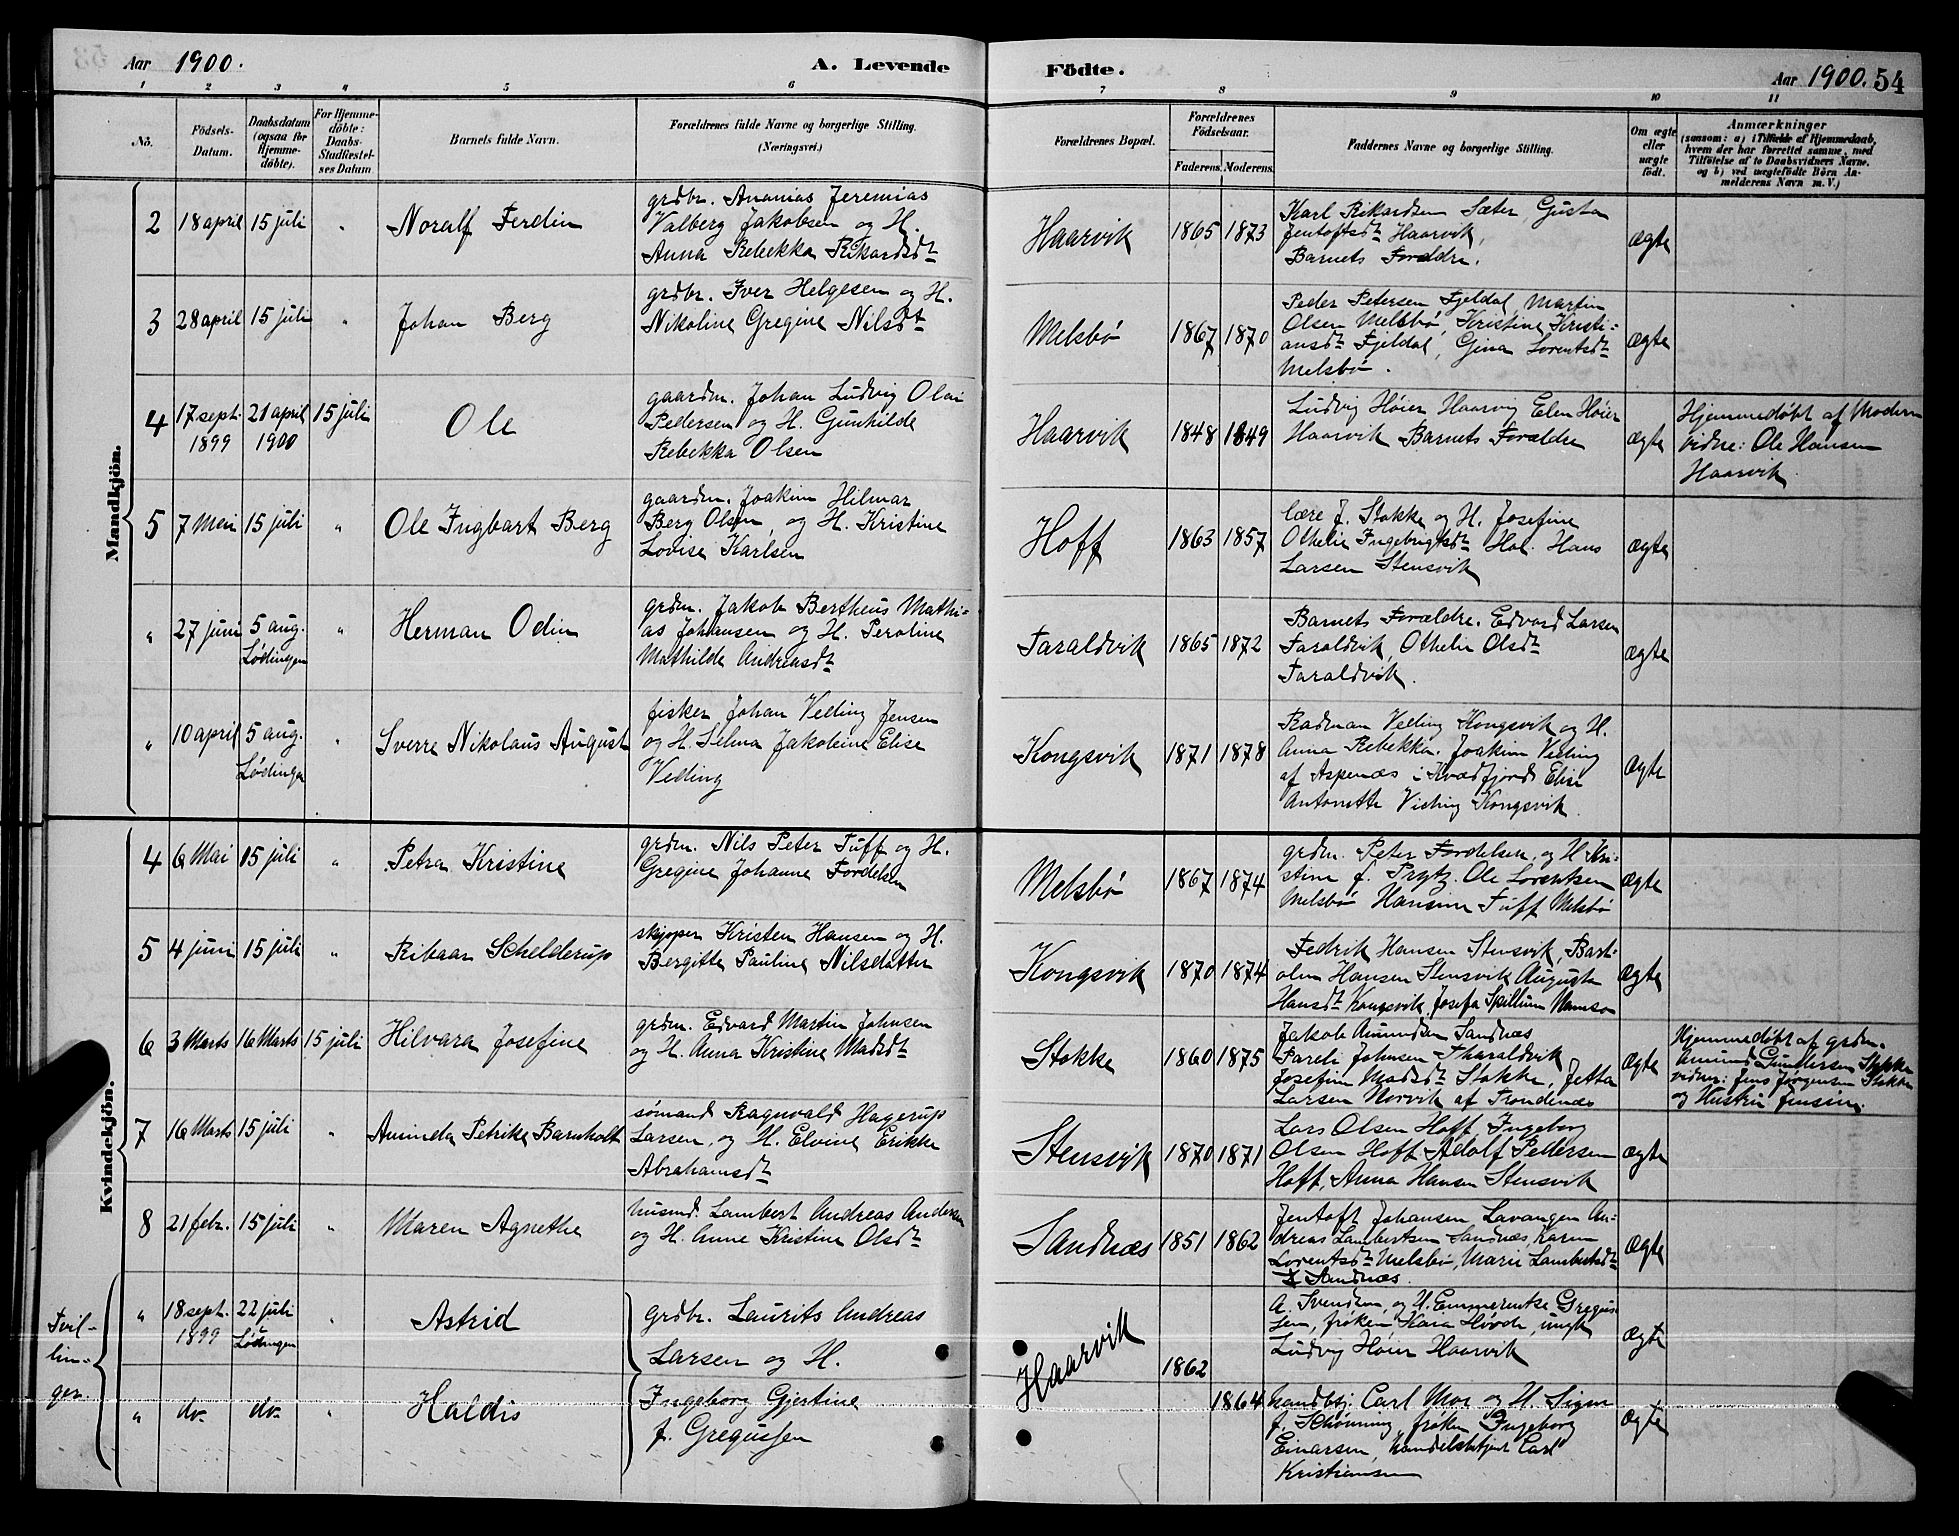 Aar 1900. A. Levende Födte. Aar 1900. 54
1 2 3 4 5 6 7 8 9 10 11
No.
Födsels-
Datum.
Daabsdatum
(ogsaa for
Hjemme-
döbte).
For Hjemme-
döbte:
Daabs-
Stadfæstel-
ses Datum
Barnets fulde Navn.
Forældrenes fulde Navne og borgerlige Stilling.
(Næringsvei.)
Forældrenes Bopæl.
Forældrenes
Födselsaar.
Faderens. Moderens.
Faddernes Navne og borgerlige Stilling.
Om ægte
eller
uægte
födt.
Anmærkninger
(saasom: a) i Tilfælde af Hjemmedaab,
hvem der har forrettet samme, med
Tilföielse af to Daabsvidners Navne.
og b) ved uægtefödte Börn An-
melderens Navn m. V.)
Mandkjön.
2 18 april 15 juli " Noralf Ferdin
grdbr. Ananias Jeremias
Valberg Jakobsen og H.
Anna Rebekka Rikardsdt
Haarvik 1865 1873
Karl Rikardsen Sæter, Gusta
Jentoftsdt Haarvik,
Barnets Forældre.
ægte
3 28 april 15 juli " Johan Berg
grdbr. Iver Helgesen og H.
Nikoline Gregine Nilsdt
Melsbö 1867 1870
Peder Petersen Fjeldal, Martin
Olsen Melsbö, Kristine Kristi-
ansdt Fjeldal, Gina Lorentsdt
Melsbö.
ægte
4 17 sept. 1899 21 april 1900 15 juli Ole
gaardm. Johan Ludvig Olai
Pedersen og H. Gunhilde
Rebekka Olsen
Haarvik 1848 1849
Ludvig Höier Haarvig Elen Höier
Haarvik Barnets Forældre
ægte
Hjemmedöbt af Modern
vidne: Ole Hansen
Haarvik.
5 7 Mai 15 juli " Ole Ingbart Berg
gaardm. Joakim Hilmar
Berg Olsen, og H. Kristine
Lovise Karlsen
Hoff 1863 1857
lære J. Stokke og H. Josefine
Othelie Ingebrigtsdt Hol. Hans
Larsen Stensvik
ægte
" 27 juni 5 aug. Lödingen " Herman Odin
grdm. Jakob Bertheus Mathi-
as Johansen og H. Peroline
Mathilde Andreasdt
Taraldvik 1865 1872
Barnets Forældre. Edvard Larsen
Taraldvik, Othelie Olsdt
Taraldvik.
ægte
" 10 april 5 aug. Lödingen " Sverre Nikolaus August
fisker Johan Veding Jensen
og H. Selma Jakobine Elise
Veding
Kongsvik 1871 1878
Radman Veding Kongsvik og H.
Anna Rebekka. Joakim Veding
af Aspenæs i Kvædfjord Elise
Antonette Viding Kongsvik.
ægte
Kvindekjön.
4 6 Mai 15 juli " Petra Kristine
grdm. Nils Peter Tuff og H.
Gregine Johanne Fordelsen
Melsbö 1867 1874
grdm. Peter Fordelsen, og H Kri-
stine f. Prytz. Ole Lorentsen
Melsbö Hansine Tuff Melsbö
ægte
5 4 juni 15 juli " Ribaar Schelderup
skipper Kristen Hansen og H.
Bergitte Pauline Nilsdatter
Kongsvik 1870 1874
Fedrik Hansen Stensvik, Bart-
olm Hansen Stensvik Augusta
Hansdt Kongsvik, Josefa Spillum Namsos
ægte
6 3 Marts 16 Marts 15 juli Hilvara Josefine
grdm. Edvard Martin Johnsen
og H. Anna Kristine Madsdt
Stokke 1860 1875
Jakob Amundsen Sandnæs
Pareli Johnsen Tharaldvik
Josefine Madsdt Stokke, Jetta
Larsen Norvik af Trondenæs
ægte
Hjemmedöbt af grdm.
Amund Gundersen Stokke
vidner: Jens Jørgensen Stokke
og Hustru Jensine.
7 16 Marts 15 juli " Aminda Petrike Barnholt
sömand Ragnvald Hagerup
Larsen, og H. Elvine Erikke
Abrahamsdt
Stensvik 1870 1871
Lars Olsen Hoff, Ingeborg
Olsen Hoff Adolf Pettersen
Hoff, Anna Hansen Stensvik
ægte
8 21 febr. 15 juli " Maren Agnethe
husmd. Lambert Andreas Andersen
og H. Anne Kristine Olsdt
Sandnæs 1851 1862
Jentoft Johansen Lavangen An-
dreas Lambertsen Sandnæs, Karen
Lorentsdt Melsbö, Marie Lambertsdt
Sandnæs.
ægte
Tvil-
lin-
ger.
" 18 sept. 1899 22 juli i Lödingen " Astrid
grdbr. Laurits Andreas
Larsen og H.
Haarvik 1862
A. Svendsen, og H. Emmerentse Gregus-
sen, fröken Kara Hövde, ungk
Ludvig Höier Haarvik
ægte
" do do " Haldis
Ingeborg Gjertine
f. Gregussen
1864
handbtj. Carl Moe og H. Signe
f. Schönning, fröken Ingeborg
Einarsen, handelsbetjent Carl
Kristiansen
ægte